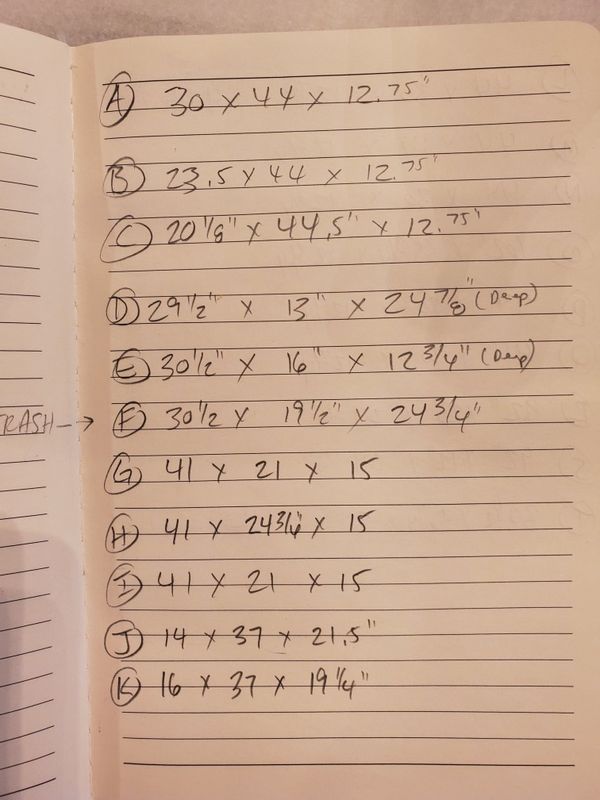 A 30 x 44 x 12.75"
B 23.5 x 44 x 12.75"
C 20 1/8" x 44.5" x 12.75"
D 29 1/2" x 13" x 24 7/8" (Deep)
E 30 1/2" x 16" x 12 3/4" (Deep)
TRASH → F 30 1/2 x 19 1/2" x 24 3/4"
G 41 x 21 x 15
H 41 x 24 3/4 x 15
I 41 x 21 x 15
J 14 x 37 x 21.5"
K 16 x 37 x 19 1/4"